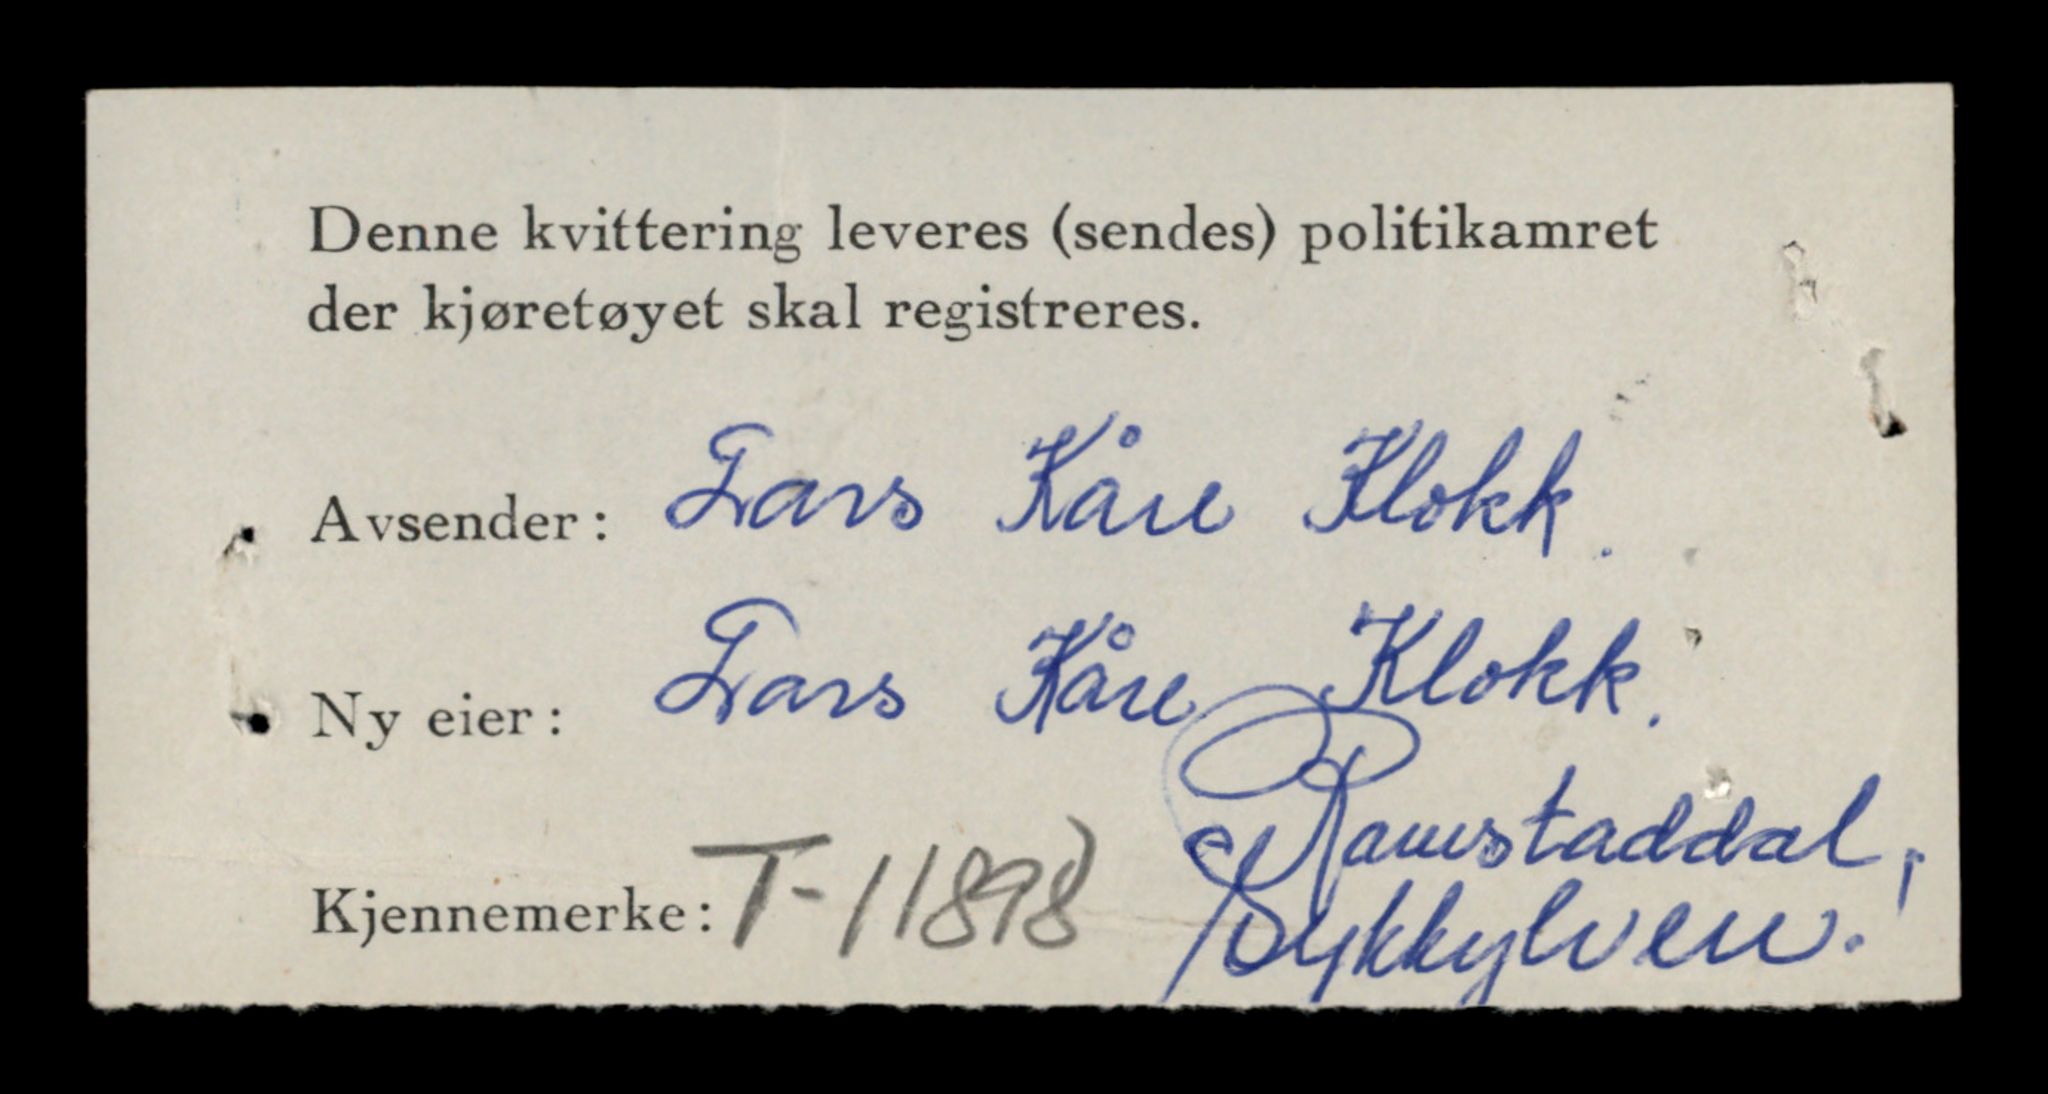 Denne kvittering leveres (sendes) politikamret
der kjøretøyet skal registreres.
Avsender: Lars Kåre Klokk.
Ny eier: Lars Kåre Klokk.
Ramstaddal,
Sykkylven.
Kjennemerke: T-11898